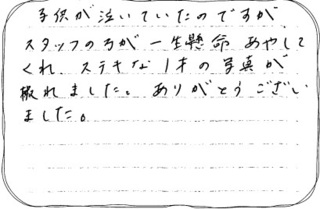 子供が泣いていたのですが
スタッフの方が一生懸命あやして
くれ、ステキな1才の写真が
撮れました。ありがとうござい
ました。